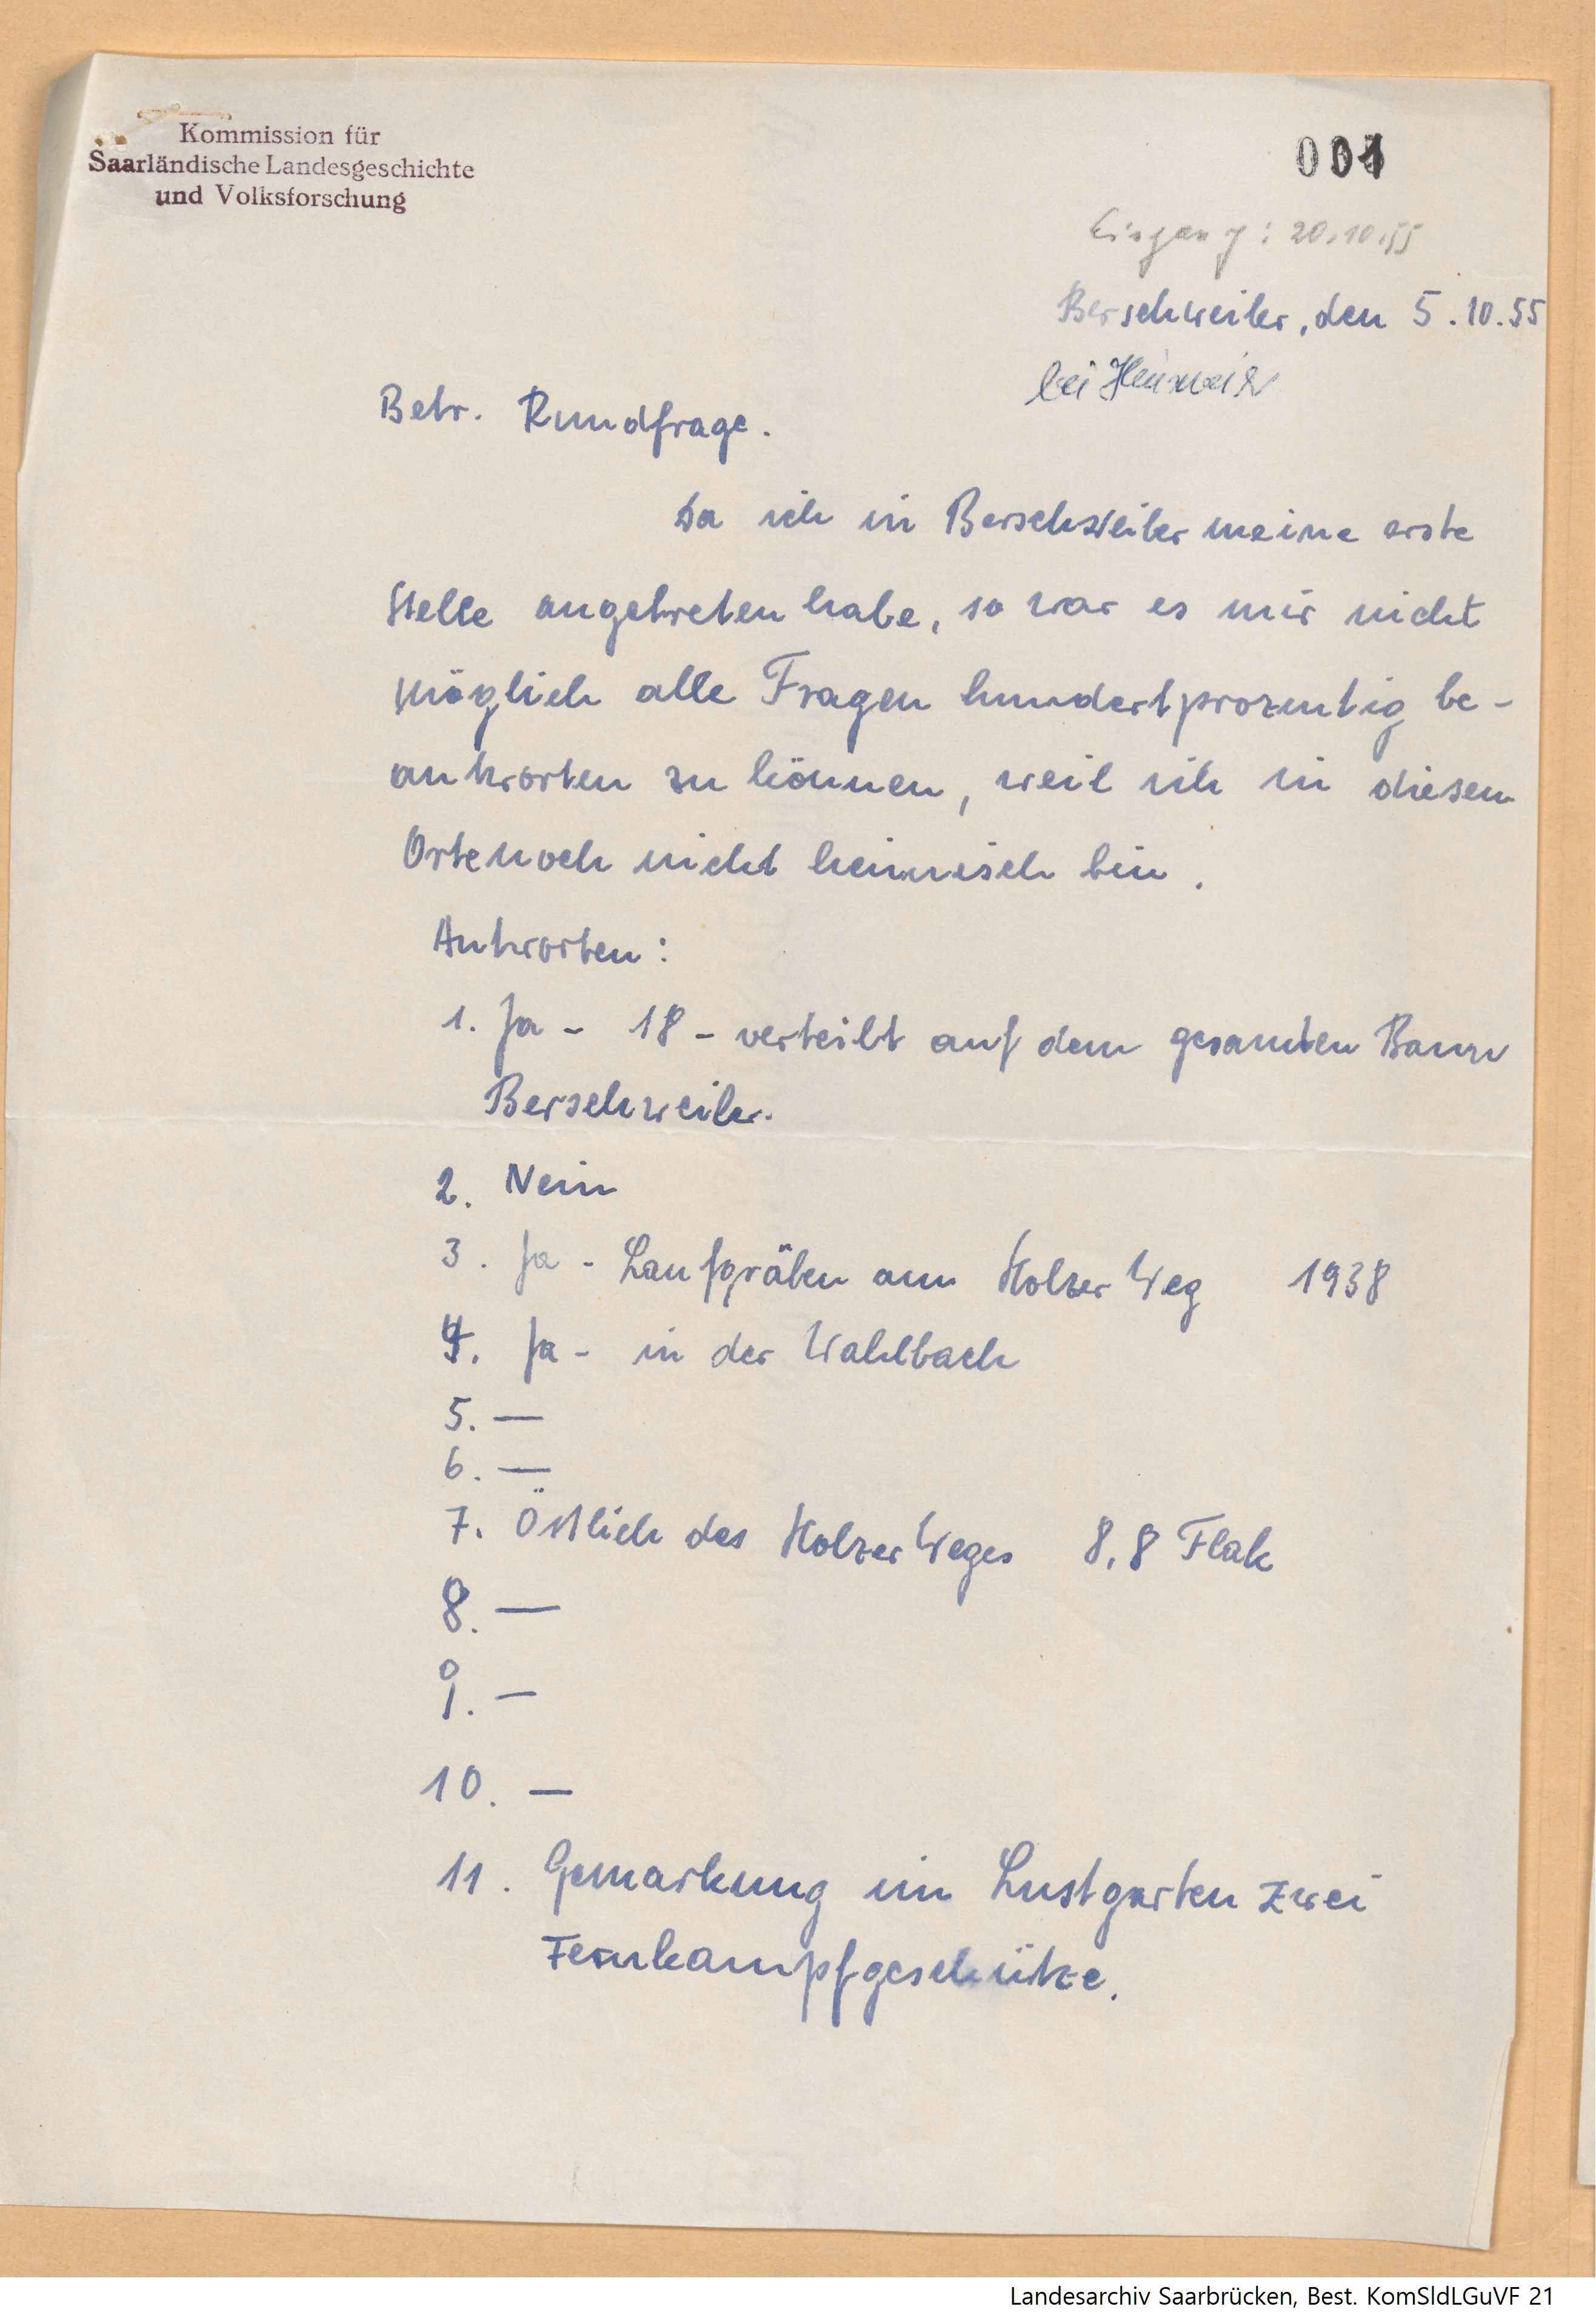 Kommission für
Saarländische Landesgeschichte
und Volksforschung
001
Eingang: 20.10.55
Berschweiler, den 5.10.55
bei Heusweiler
Betr. Rundfrage.
Da ich in Berschweiler meine erste
Stelle angetreten habe, so war es mir nicht
möglich alle Fragen hundertprozentig be-
antworten zu können, weil ich in diesem
Orte noch nicht heimisch bin.
Antworten:
1. Ja - 18 - verteilt auf dem gesamten Bann
Berschweiler.
2. Nein
3. Ja - Laufgräben am Holzer Weg 1938
4. Ja - in der Wahlbach
5. —
6. —
7. Östlich des Holzer Weges 8,8 Flak
8. —
9. —
10. —
11. Gemarkung im Lustgarten zwei
Fernkampfgeschütze.
Landesarchiv Saarbrücken, Best. KomSldLGuVF 21